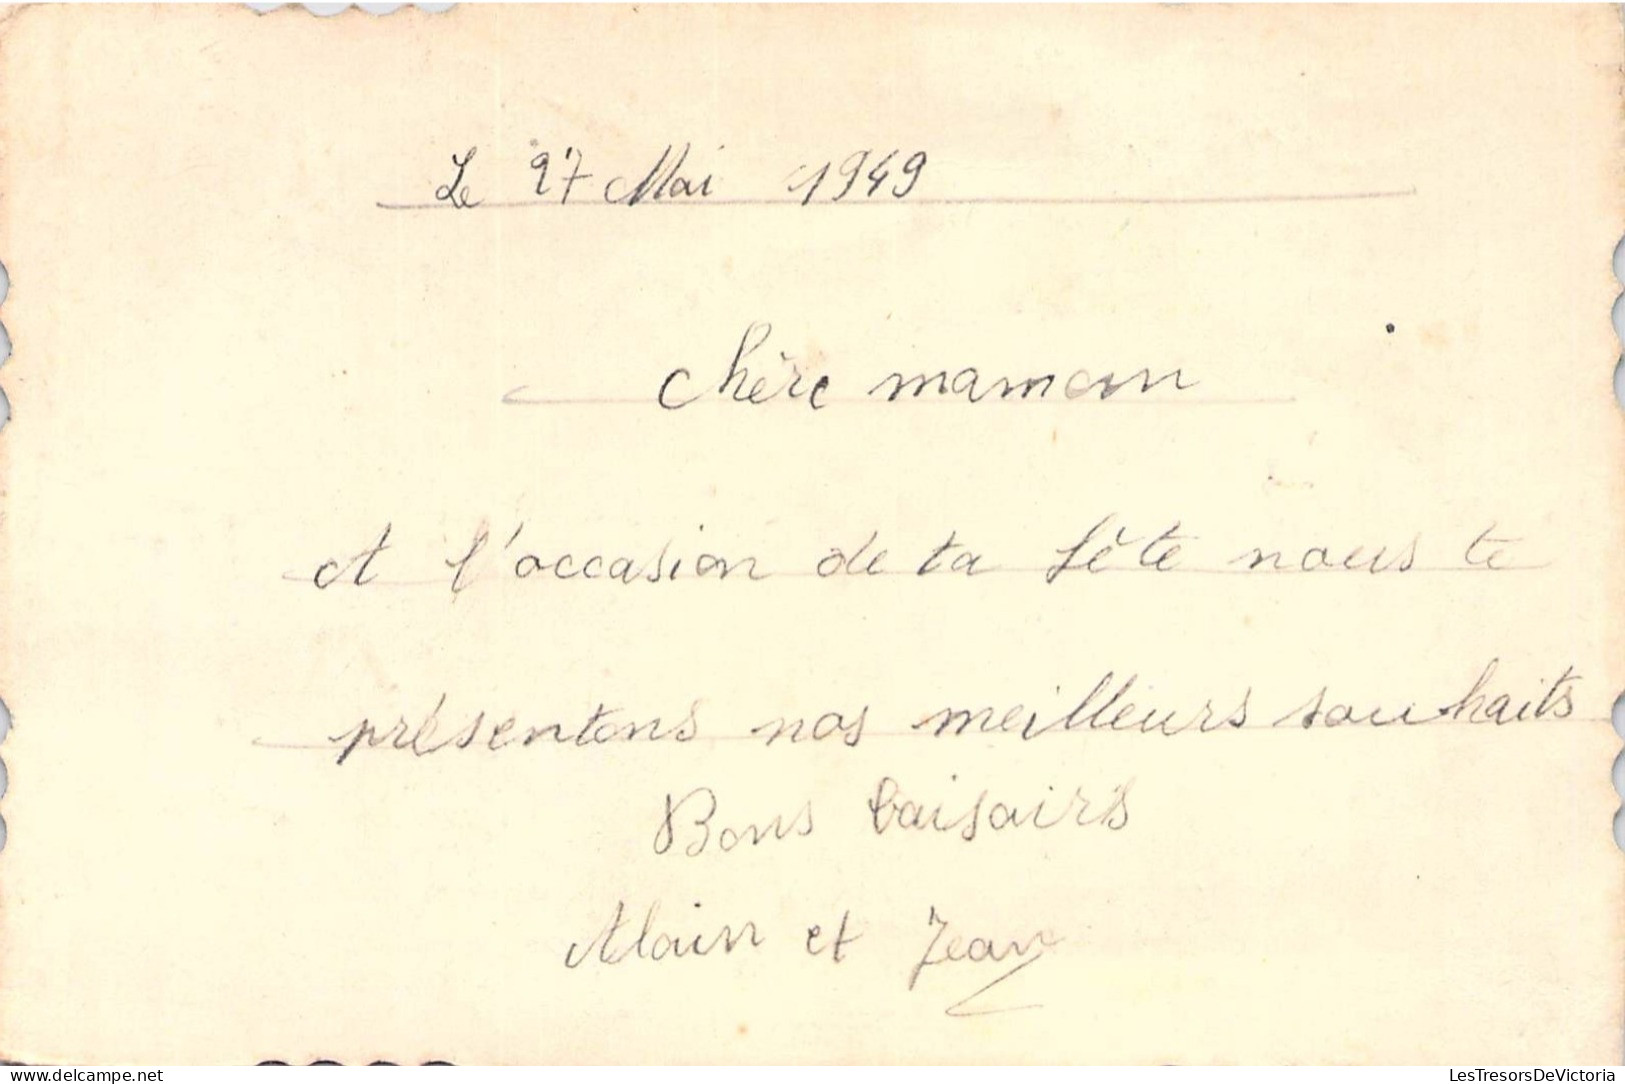 Le 27 Mai 1949
Chère maman
A l'occasion de ta fête nous te
présentons nos meilleurs souhaits
Bons baisairs
Alain et Jean
www.delcampe.net
LesTresorsDeVictoria